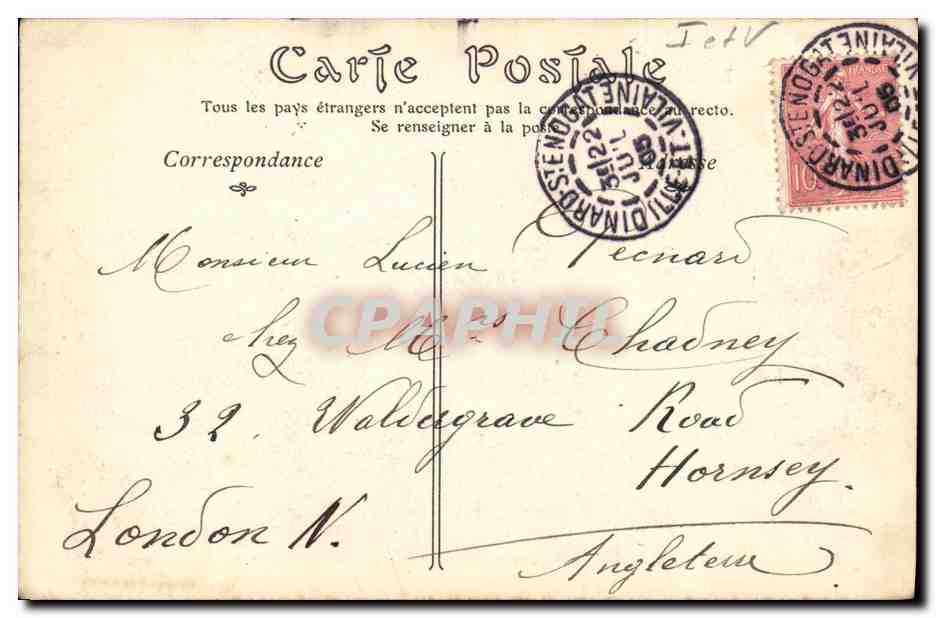 I et V
Carte Postale
Tous les pays étrangers n'acceptent pas la correspondance au recto.
Se renseigner à la poste
Correspondance
Adresse
DINARD-ST ENOGAT ILLE-ET-VILAINE
3E/22
JUIL
05
DINARD-ST ENOGAT ILLE-ET-VILAINE
3E/21
JUIL
05
10
Monsieur Lucien
chez Mrs Chadney
32. Waldegrave Road
Hornsey.
London N.
Angleterre
CPAPHIL